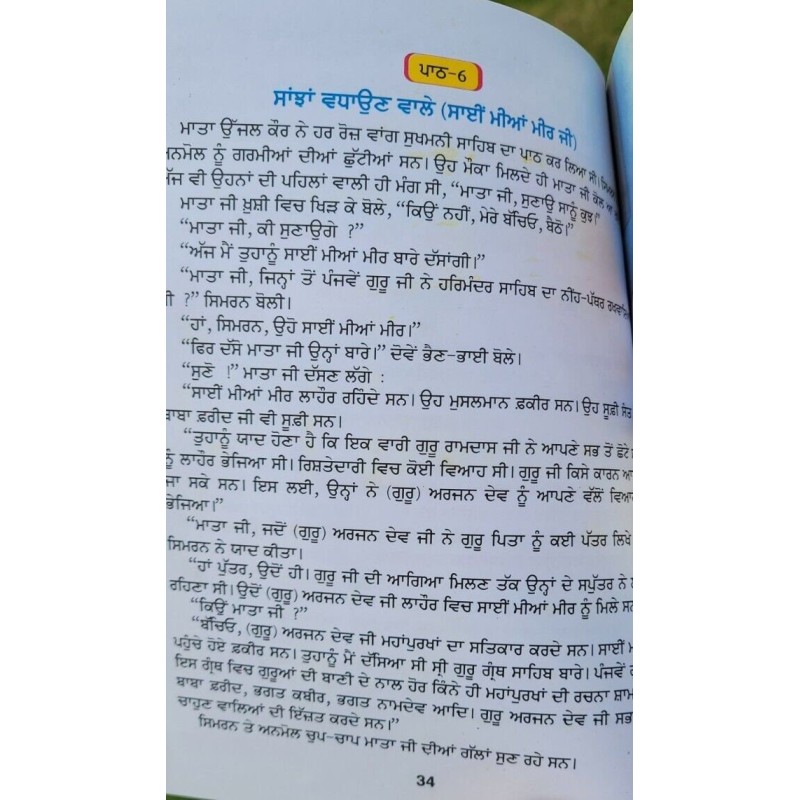 ਪਾਠ-6
ਸਾਂਝਾਂ ਵਧਾਉਣ ਵਾਲੇ (ਸਾਈਂ ਮੀਆਂ ਮੀਰ ਜੀ)
ਮਾਤਾ ਉੱਜਲ ਕੌਰ ਨੇ ਹਰ ਰੋਜ਼ ਵਾਂਗ ਸੁਖਮਨੀ ਸਾਹਿਬ ਦਾ ਪਾਠ ਕਰ ਲਿਆ ਸੀ।
ਅਨਮੋਲ ਨੂੰ ਗਰਮੀਆਂ ਦੀਆਂ ਛੁੱਟੀਆਂ ਸਨ। ਉਹ ਮੌਕਾ ਮਿਲਦੇ ਹੀ ਮਾਤਾ ਜੀ ਕੋਲ
ਵੀ ਉਹਨਾਂ ਦੀ ਪਹਿਲਾਂ ਵਾਲੀ ਹੀ ਮੰਗ ਸੀ, “ਮਾਤਾ ਜੀ, ਸੁਣਾਉ ਸਾਨੂੰ ਕੁਝ।”
ਮਾਤਾ ਜੀ ਖ਼ੁਸ਼ੀ ਵਿਚ ਖਿੜ ਕੇ ਬੋਲੇ, “ਕਿਉਂ ਨਹੀਂ, ਮੇਰੇ ਬੱਚਿਓ, ਬੈਠੋ।”
“ਮਾਤਾ ਜੀ, ਕੀ ਸੁਣਾਉਗੇ ?”
“ਅੱਜ ਮੈਂ ਤੁਹਾਨੂੰ ਸਾਈਂ ਮੀਆਂ ਮੀਰ ਬਾਰੇ ਦੱਸਾਂਗੀ।”
“ਮਾਤਾ ਜੀ, ਜਿਨ੍ਹਾਂ ਤੋਂ ਪੰਜਵੇਂ ਗੁਰੂ ਜੀ ਨੇ ਹਰਿਮੰਦਰ ਸਾਹਿਬ ਦਾ ਨੀਂਹ-ਪੱਥਰ
?” ਸਿਮਰਨ ਬੋਲੀ।
“ਹਾਂ, ਸਿਮਰਨ, ਉਹੋ ਸਾਈਂ ਮੀਆਂ ਮੀਰ।”
“ਫਿਰ ਦੱਸੋ ਮਾਤਾ ਜੀ ਉਨ੍ਹਾਂ ਬਾਰੇ।” ਦੋਵੇਂ ਭੈਣ-ਭਾਈ ਬੋਲੇ।
“ਸੁਣੋ !” ਮਾਤਾ ਜੀ ਦੱਸਣ ਲੱਗੇ :
“ਸਾਈਂ ਮੀਆਂ ਮੀਰ ਲਾਹੌਰ ਰਹਿੰਦੇ ਸਨ। ਉਹ ਮੁਸਲਮਾਨ ਫ਼ਕੀਰ ਸਨ। ਉਹ ਸੂਫ਼ੀ ਸੰਤ
ਬਾਬਾ ਫ਼ਰੀਦ ਜੀ ਵੀ ਸੂਫ਼ੀ ਸਨ।
“ਤੁਹਾਨੂੰ ਯਾਦ ਹੋਣਾ ਹੈ ਕਿ ਇਕ ਵਾਰੀ ਗੁਰੂ ਰਾਮਦਾਸ ਜੀ ਨੇ ਆਪਣੇ ਸਭ ਤੋਂ ਛੋਟੇ
ਨੂੰ ਲਾਹੌਰ ਭੇਜਿਆ ਸੀ। ਰਿਸ਼ਤੇਦਾਰੀ ਵਿਚ ਕੋਈ ਵਿਆਹ ਸੀ। ਗੁਰੂ ਜੀ ਕਿਸੇ ਕਾਰਨ ਆ
ਜਾ ਸਕੇ ਸਨ। ਇਸ ਲਈ, ਉਨ੍ਹਾਂ ਨੇ (ਗੁਰੂ) ਅਰਜਨ ਦੇਵ ਨੂੰ ਆਪਣੇ ਵੱਲੋਂ ਵਿਆ
ਭੇਜਿਆ।”
“ਮਾਤਾ ਜੀ, ਜਦੋਂ (ਗੁਰੂ) ਅਰਜਨ ਦੇਵ ਜੀ ਨੇ ਗੁਰੂ ਪਿਤਾ ਨੂੰ ਕਈ ਪੱਤਰ ਲਿਖੇ
ਸਿਮਰਨ ਨੇ ਯਾਦ ਕੀਤਾ।
“ਹਾਂ ਪੁੱਤਰ, ਉਦੋਂ ਹੀ। ਗੁਰੂ ਜੀ ਦੀ ਆਗਿਆ ਮਿਲਣ ਤੱਕ ਉਨ੍ਹਾਂ ਦੇ ਸਪੁੱਤਰ ਨੇ
ਰਹਿਣਾ ਸੀ। ਉਦੋਂ (ਗੁਰੂ) ਅਰਜਨ ਦੇਵ ਜੀ ਲਾਹੌਰ ਵਿਚ ਸਾਈਂ ਮੀਆਂ ਮੀਰ ਨੂੰ ਮਿਲੇ ਸਨ
“ਕਿਉਂ ਮਾਤਾ ਜੀ ?”
“ਬੱਚਿਓ, (ਗੁਰੂ) ਅਰਜਨ ਦੇਵ ਜੀ ਮਹਾਂਪੁਰਖਾਂ ਦਾ ਸਤਿਕਾਰ ਕਰਦੇ ਸਨ। ਸਾਈਂ
ਪਹੁੰਚੇ ਹੋਏ ਫ਼ਕੀਰ ਸਨ। ਤੁਹਾਨੂੰ ਮੈਂ ਦੱਸਿਆ ਸੀ ਸ੍ਰੀ ਗੁਰੂ ਗ੍ਰੰਥ ਸਾਹਿਬ ਬਾਰੇ। ਪੰਜਵੇਂ
ਇਸ ਗ੍ਰੰਥ ਵਿਚ ਗੁਰੂਆਂ ਦੀ ਬਾਣੀ ਦੇ ਨਾਲ ਹੋਰ ਕਿੰਨੇ ਹੀ ਮਹਾਂਪੁਰਖਾਂ ਦੀ ਰਚਨਾ ਸ਼ਾਮ
ਬਾਬਾ ਫ਼ਰੀਦ, ਭਗਤ ਕਬੀਰ, ਭਗਤ ਨਾਮਦੇਵ ਆਦਿ। ਗੁਰੂ ਅਰਜਨ ਦੇਵ ਜੀ ਸਭ
ਚਾਹੁਣ ਵਾਲਿਆਂ ਦੀ ਇੱਜ਼ਤ ਕਰਦੇ ਸਨ।”
ਸਿਮਰਨ ਤੇ ਅਨਮੋਲ ਚੁਪ-ਚਾਪ ਮਾਤਾ ਜੀ ਦੀਆਂ ਗੱਲਾਂ ਸੁਣ ਰਹੇ ਸਨ।
34